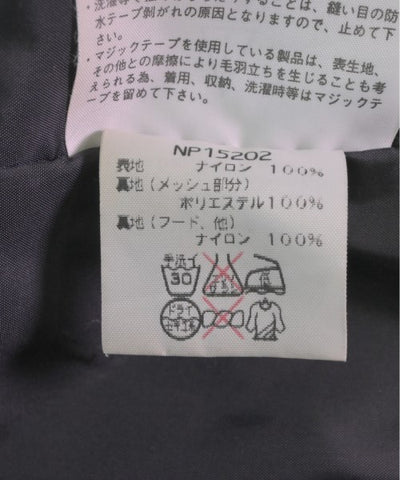 水テープ剥がれの原因となりますので、止めて下
さい。
・マジックテープを使用している製品は、表生地、
その他との摩擦により毛羽立ちを生じることも考
えられる為、着用、収納、洗濯時等はマジックテ
ープを留めて下さい。
NP15202
表地 ナイロン 100%
裏地(メッシュ部分)
ポリエステル100%
裏地(フード、他)
ナイロン 100%
手洗イ
30
ドライ